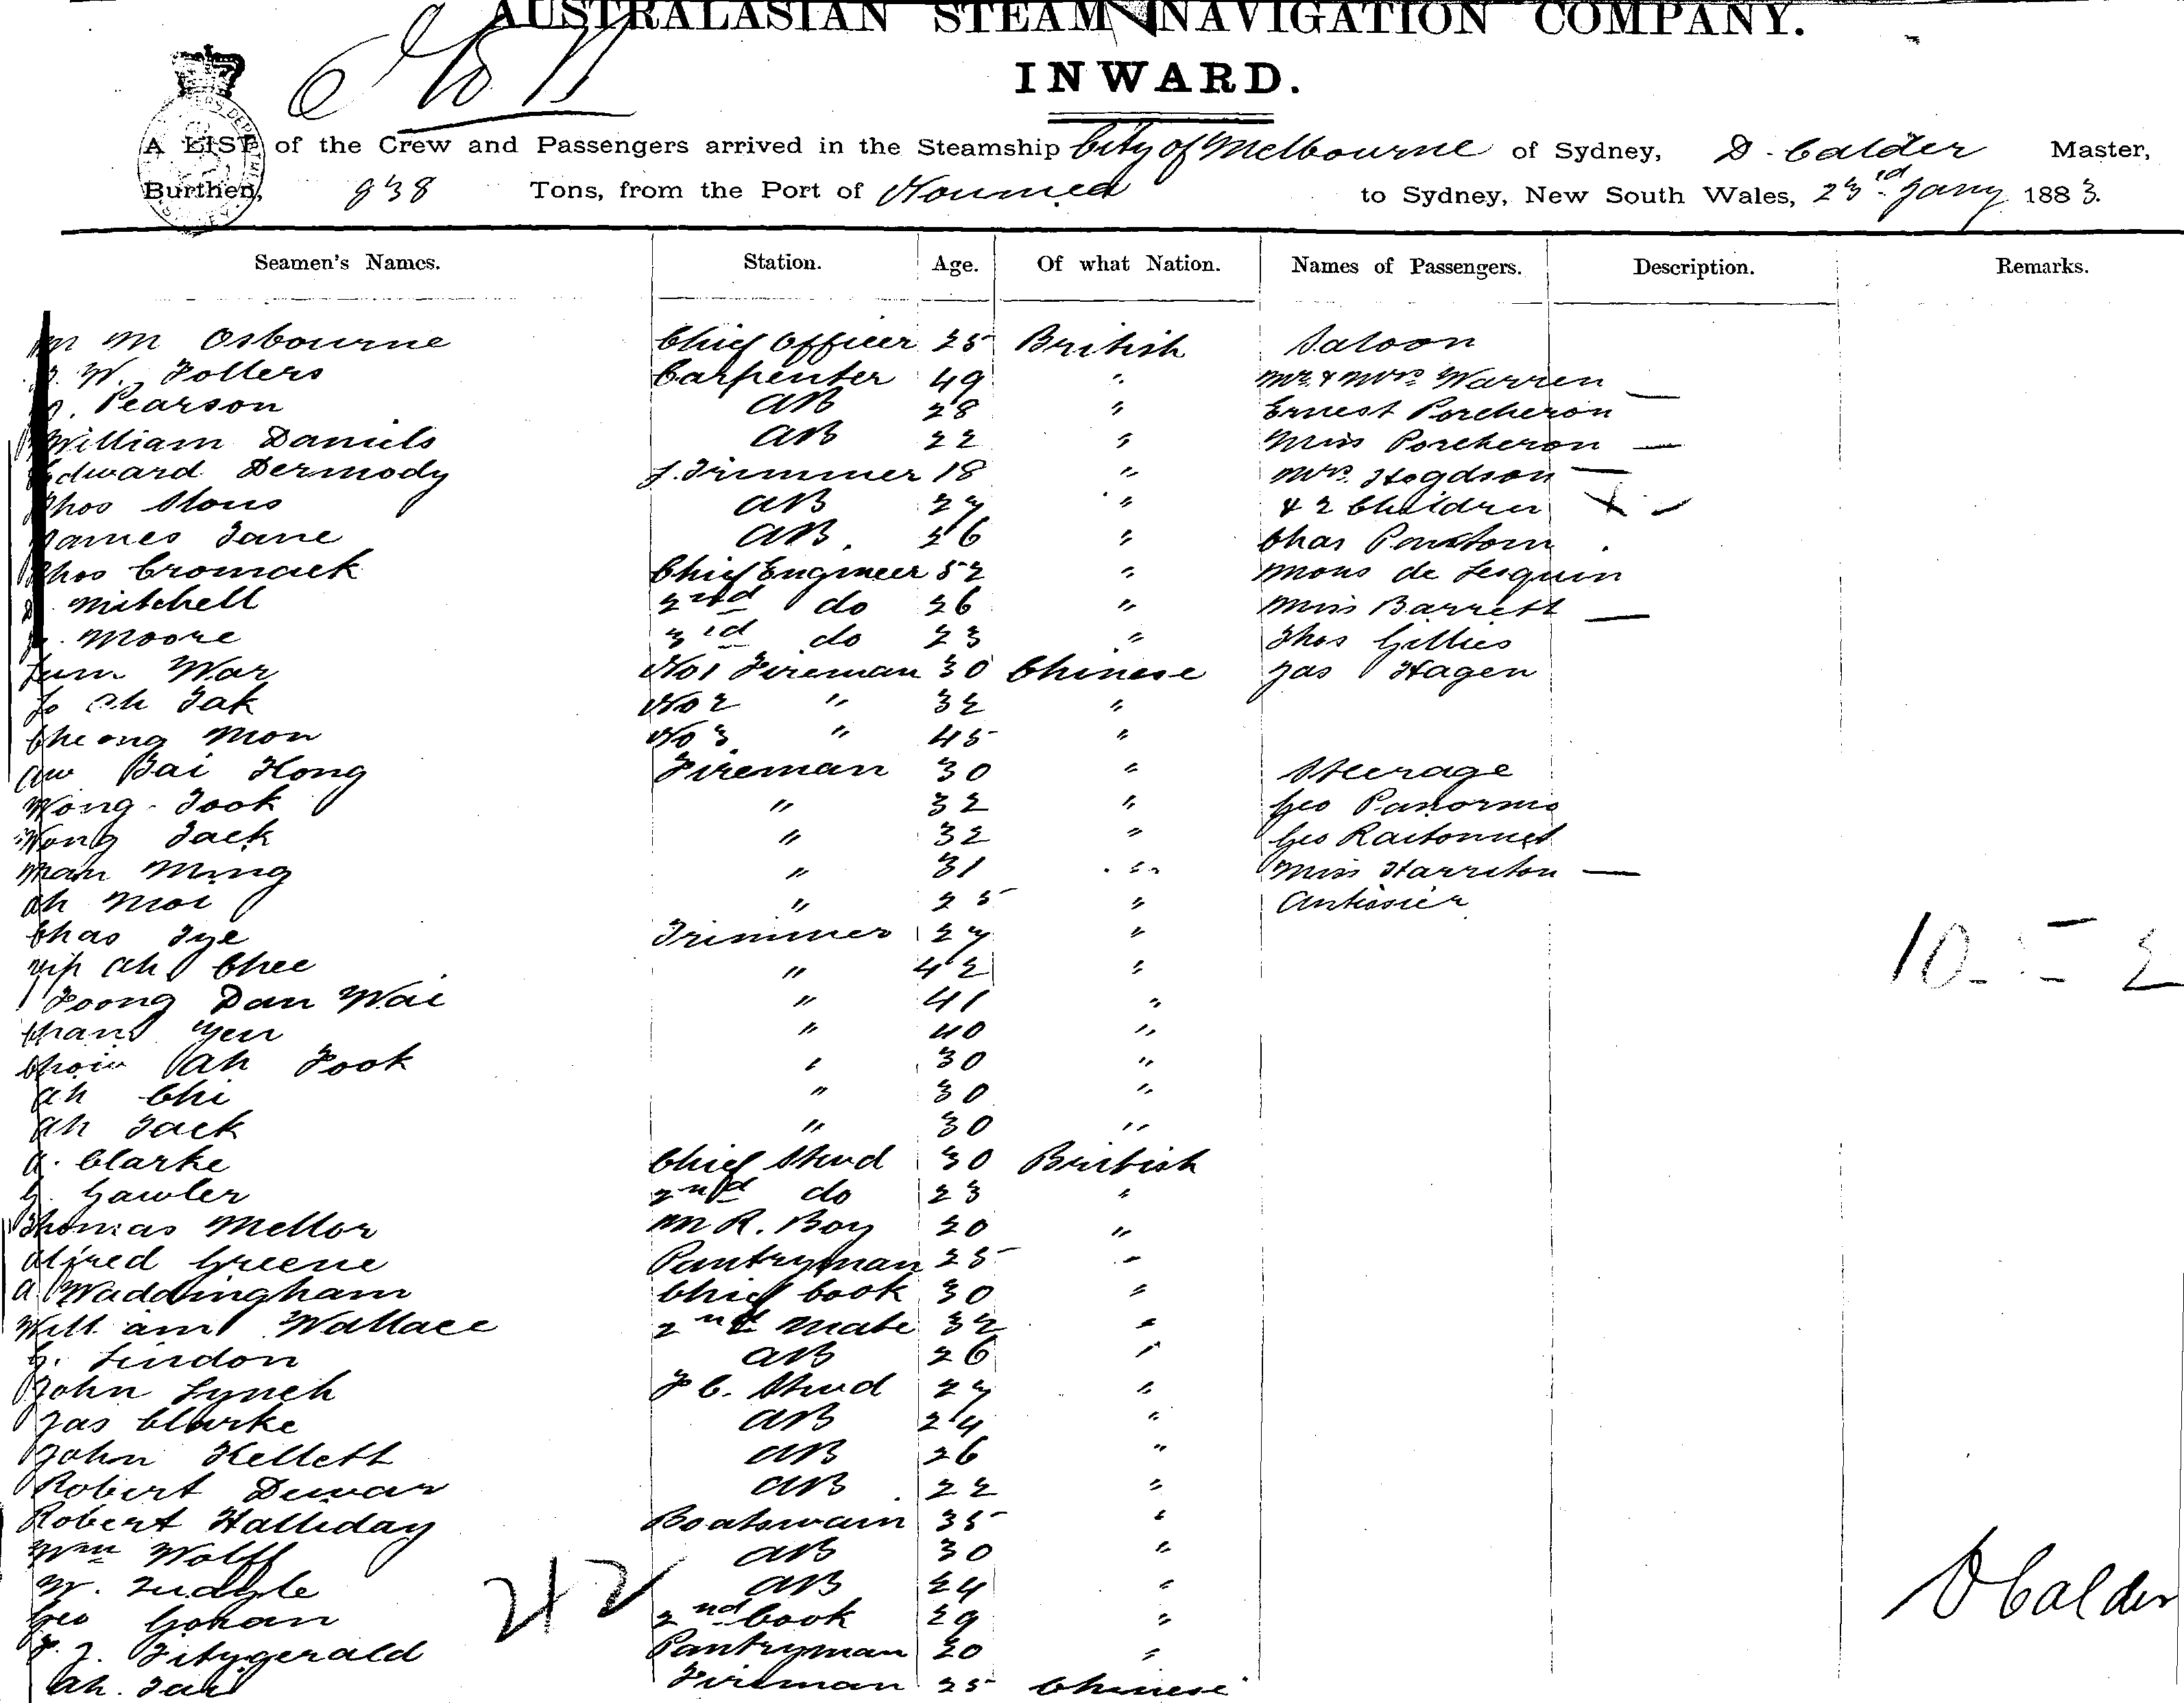 AUSTRALASIAN STEAM NAVIGATION COMPANY.
INWARD.
A LIST of the Crew and Passengers arrived in the Steamship City of Melbourne of Sydney, D. Calder Master,
Burthen, 838 Tons, from the Port of Noumea to Sydney, New South Wales, 23rd Jany 1883.
Seamen's Names. Station. Age. Of what Nation. Names of Passengers. Description. Remarks.
M M Osbourne Chief Officer 25 British Saloon
W. Carpenter 49 " Mr & Mrs Warren
Pearson AB 28 " Ernest Porcheron
William Daniels AB 22 " Miss Porcheron
Edward Dermody L. Trimmer 18 " Mrs. Hogdson
Thos AB 27 " & 2 Children
James Lane AB. 26 " Chas
Thos Cromack Chief Engineer 52 " Mons de Lesquin
Mitchell 2nd do 26 " Miss Barrett
Moore 3rd do 23 " Thos Gillies
War No 1 Fireman 30 Chinese Jas Hagen
Ah Tak No 2 " 32 "
Cheong Mon No 3 " 45 "
Bai Hong Fireman 30 " Steerage
Wong Took " 32 " Geo Panormo
Wong Jack " 32 " Geo
Man Ming " 31 " Miss Harriton
Ah Moi " 25 "
Chas Tye Trimmer 27 "
Yip Ah Chee " 42 "
Foong Dan Wai " 41 "
Yen " 40 "
Ah Fook " 30 "
Ah Chi " 30 "
Ah Jack " 30 "
A. Clarke Chief Stwd 30 British
G. Gawler 2nd do 23 "
Thomas Mellor M R. Boy 20 "
Alfred Greene Pantryman 25 "
A. Waddingham Chief Cook 30 "
William Wallace 2nd Mate 32 "
G. Lindon AB 26 "
John Lynch F C. Stwd 27 "
Jas Clarke AB 24 "
John Kellett AB 26 "
Robert Dewar AB 22 "
Robert Halliday Boatswain 35 "
Wm Wolff AB 30 "
W. AB 24 "
Geo Gohan 2nd Cook 29 "
F. J. Fitzgerald Pantryman 20 "
Ah. Fireman 25 Chinese
42
D Calder